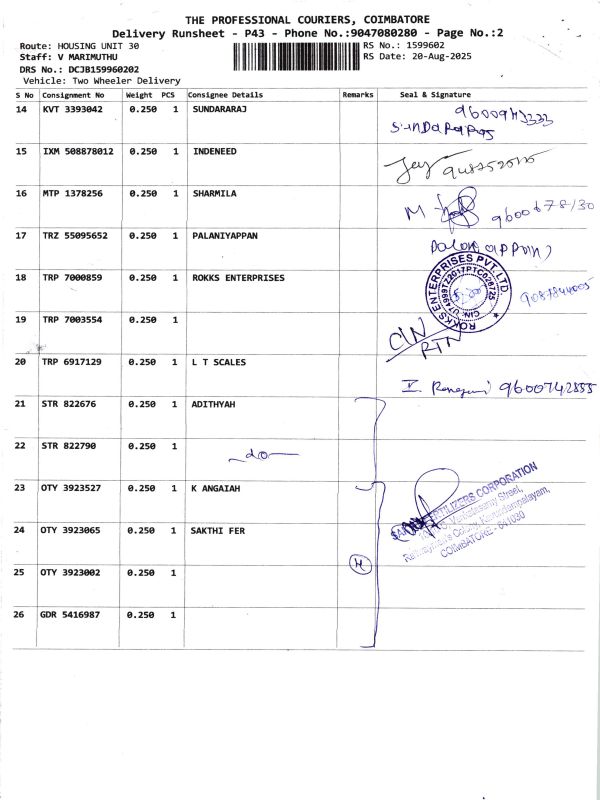 THE PROFESSIONAL COURIERS, COIMBATORE
Delivery Runsheet - P43 - Phone No.:9047080280 - Page No.:2
Route: HOUSING UNIT 30 RS No.: 1599602
Staff: V MARIMUTHU RS Date: 20-Aug-2025
DRS No.: DCJB159960202
Vehicle: Two Wheeler Delivery
S No Consignment No Weight PCS Consignee Details Remarks Seal & Signature
14 KVT 3393042 0.250 1 SUNDARARAJ
15 IXM 508878012 0.250 1 INDENEED
16 MTP 1378256 0.250 1 SHARMILA
17 TRZ 55095652 0.250 1 PALANIYAPPAN
18 TRP 7000859 0.250 1 ROKKS ENTERPRISES
ROKKS ENTERPRISES PVT. LTD.
19 TRP 7003554 0.250 1
CIN
RTN
20 TRP 6917129 0.250 1 L T SCALES
9600742855
21 STR 822676 0.250 1 ADITHYAH
22 STR 822790 0.250 1 -do-
23 OTY 3923527 0.250 1 K ANGAIAH
24 OTY 3923065 0.250 1 SAKTHI FER
FERTILIZERS CORPORATION
COIMBATORE - 641030
25 OTY 3923002 0.250 1
26 GDR 5416987 0.250 1